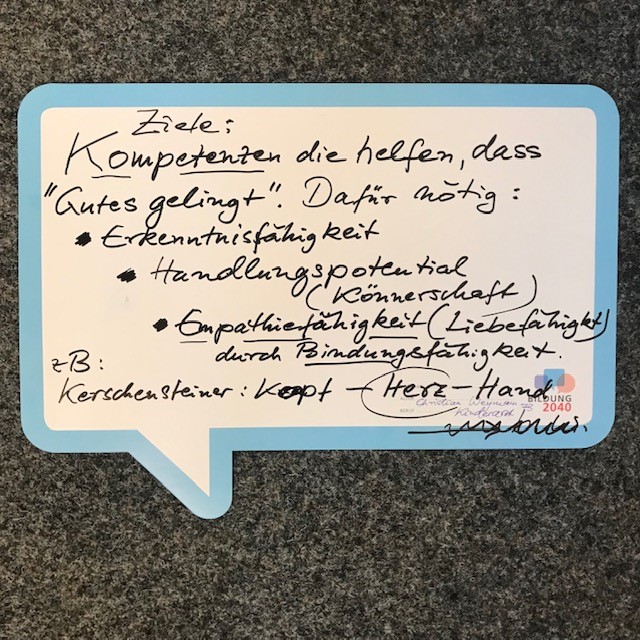 Ziele:
Kompetenzen die helfen, dass
"Gutes gelingt". Dafür nötig:
• Erkenntnisfähigkeit
• Handlungspotential
(Könnerschaft)
• Empathiefähigkeit (Liebefähigkt)
durch Bindungsfähigkeit.
zB:
Kerschensteiner: Kopf – Herz – Hand
BILDUNG
2040
Christian
Kinderarzt